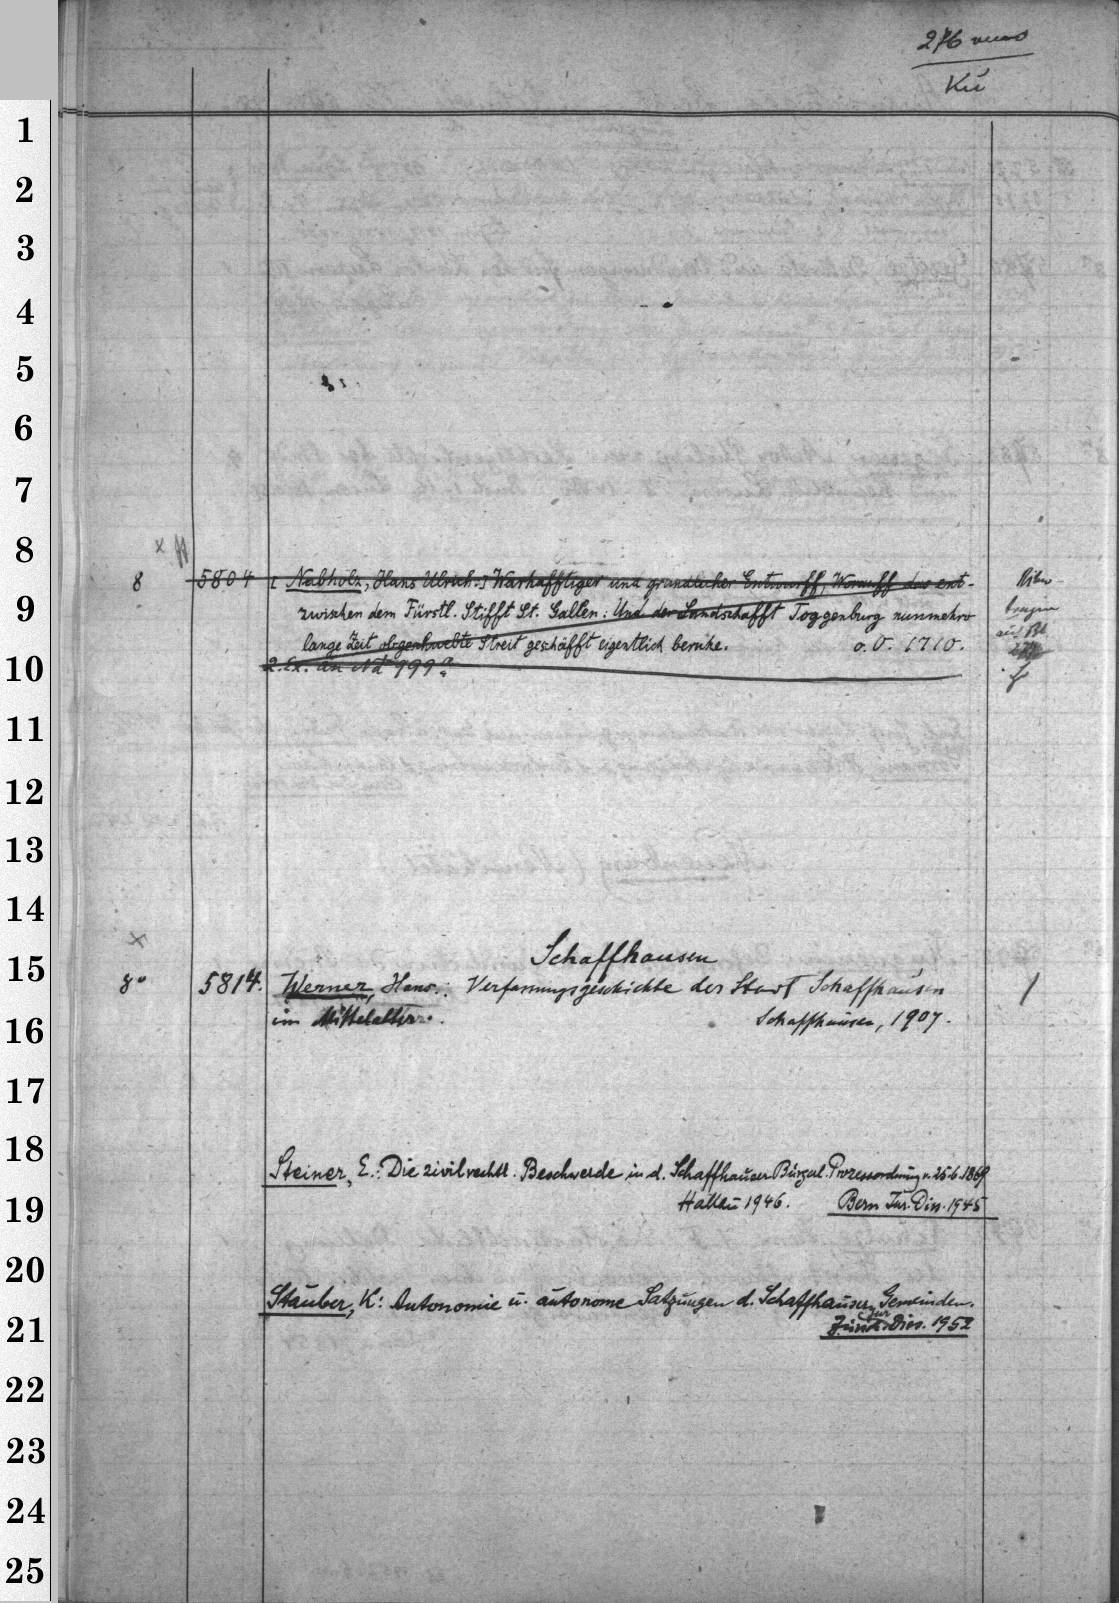 276
Kü
1
2
3
4
5
6
7
8
x
8 5804 [Nabholz, Hans Ulrich.] Warhafftiger und grundlicher Entwurff, Worauff das ent-
9 zwischen dem Fürstl. Stifft St. Gallen: Und der Landschafft Toggenburg nunmehro
lange Zeit obgeschwebte Streit geschäfft eigentlich beruhe. o. O. 1710.
10 2. Ex. an No 999a
11
12
13
14
x
Schaffhausen
15
8° 5814. Werner, Hans.: Verfassungsgeschichte der Stadt Schaffhausen /
16 im Mittelalter. Schaffhausen, 1907.
17
18
Steiner, E.: Die zivilrechtl. Beschwerde in d. Schaffhauser Bürgerl. Prozessordnung v. 25.6.1869
19 Hallau 1946. Bern Jur. Diss. 1945
20
Stauber, K: Autonomie u. autonome Satzungen d. Schaffhauser Gemeinden.
21 Zürich. Jur Diss. 1952
22
23
24
25